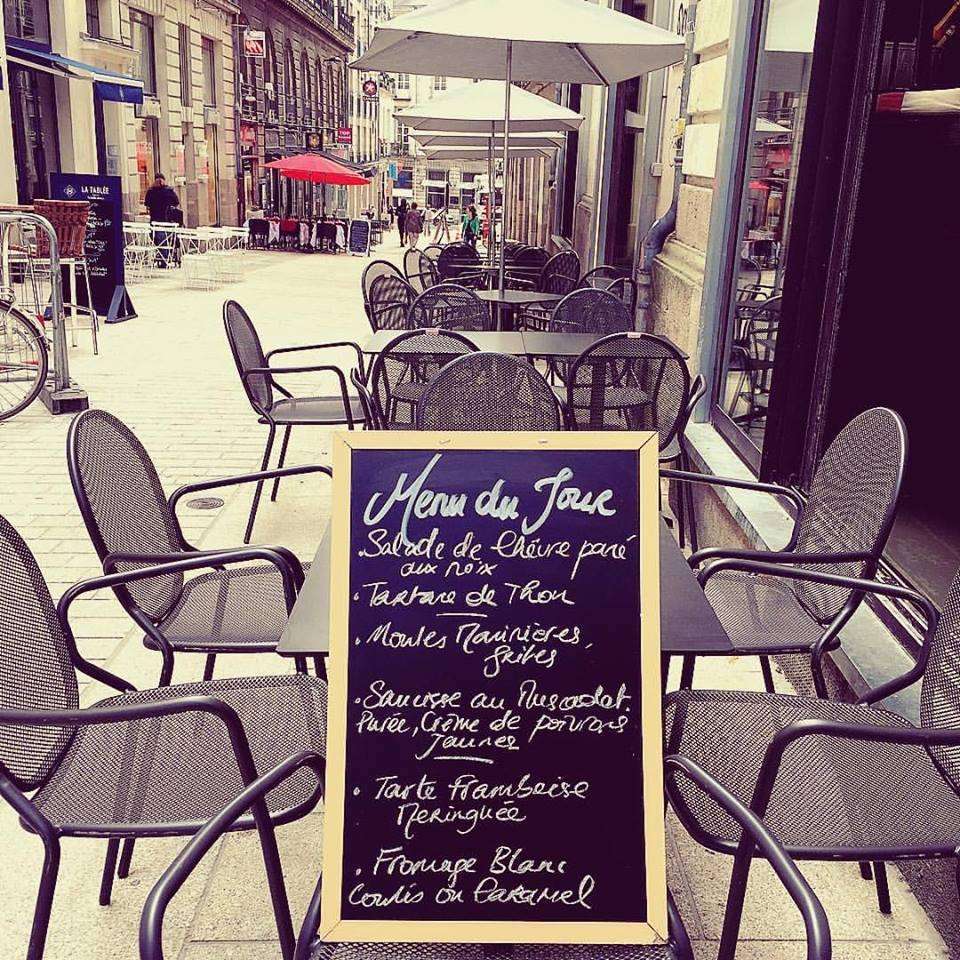 LA TABLÉE
Menu du Jour
• Salade de Chèvre pané
aux noix
• Tartare de Thon
• Moules Marinières,
frites
• Saucisse au Muscadet.
Purée, Crème de poivrons
Jaunes
• Tarte Framboise
Meringuée
• Fromage Blanc
Coulis ou Caramel